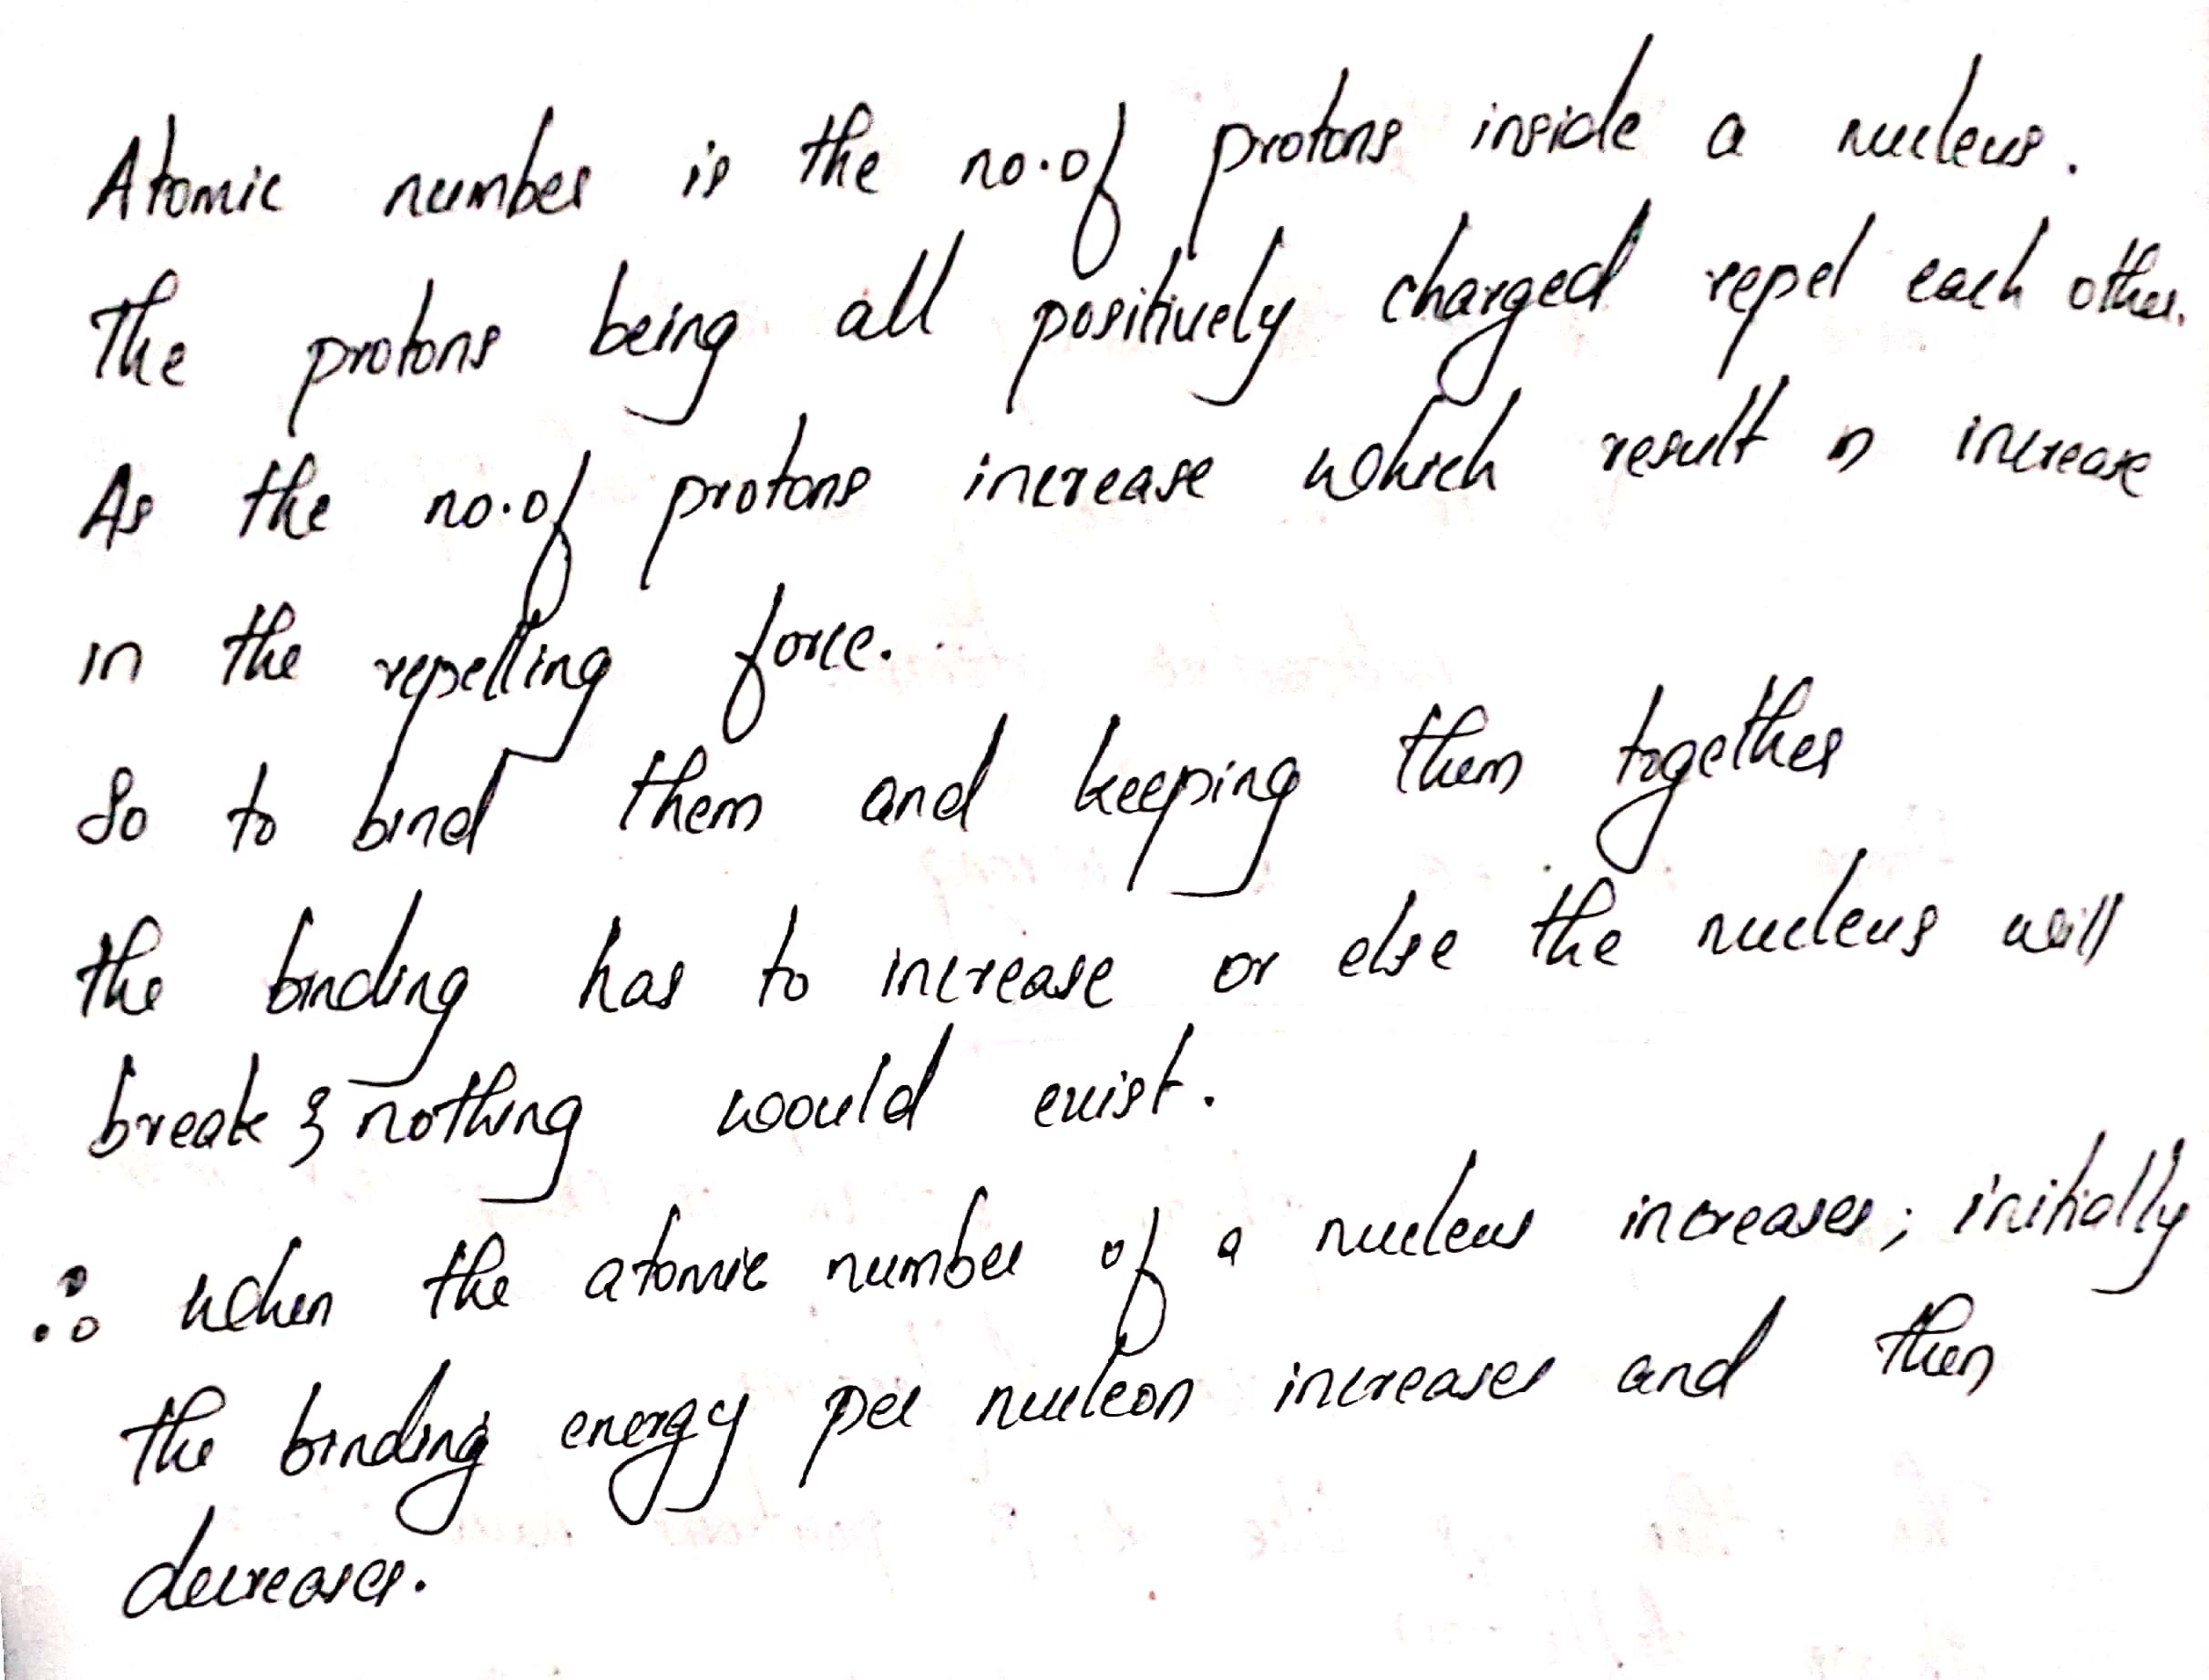 Atomic number is the no. of protons inside a nucleus.
The protons being all positively charged repel each other.
As the no. of protons increase which result in increase
in the repelling force.
So to bind them and keeping them together
the binding has to increase or else the nucleus will
break & nothing would exist.
∴ when the atomic number of a nucleus increases; initially
the binding energy per nucleon increases and then
decreases.